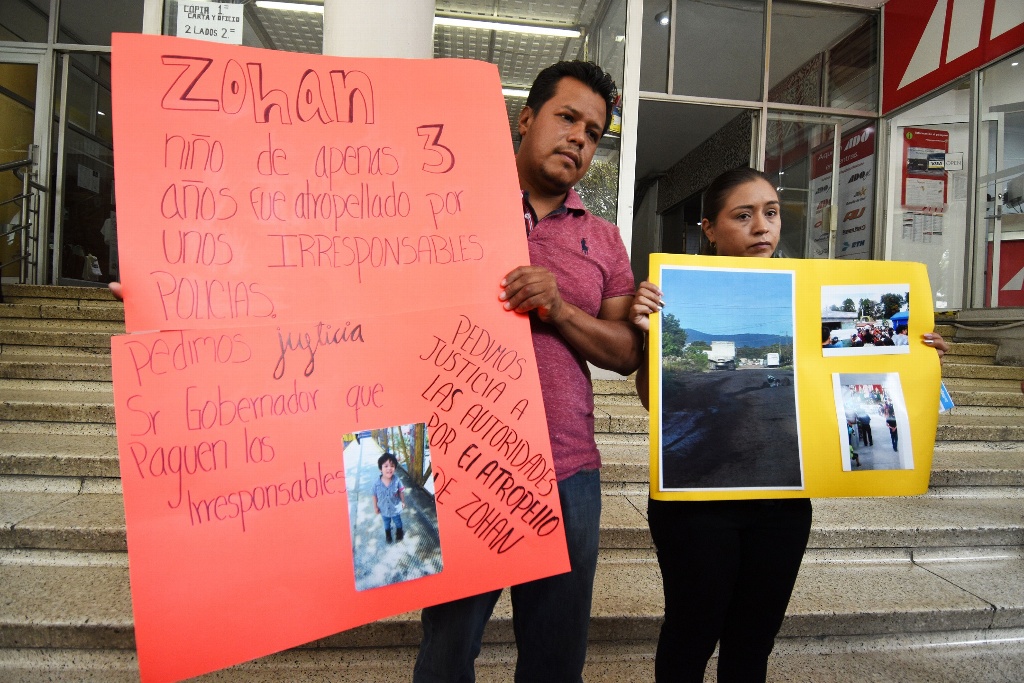 COPIA 1°
CARTA Y OFICIO
2 LADOS 2.=
Zohan
niño de apenas 3
años fue atropellado por
unos IRRESPONSABLES
POLICIAS.
Pedimos justicia
Sr Gobernador que
Paguen los
Irresponsables
PEDIMOS
JUSTICIA A
LAS AUTORIDADES
POR El ATROPELLO
DE ZOHAN
ADO
VISA
OPEN